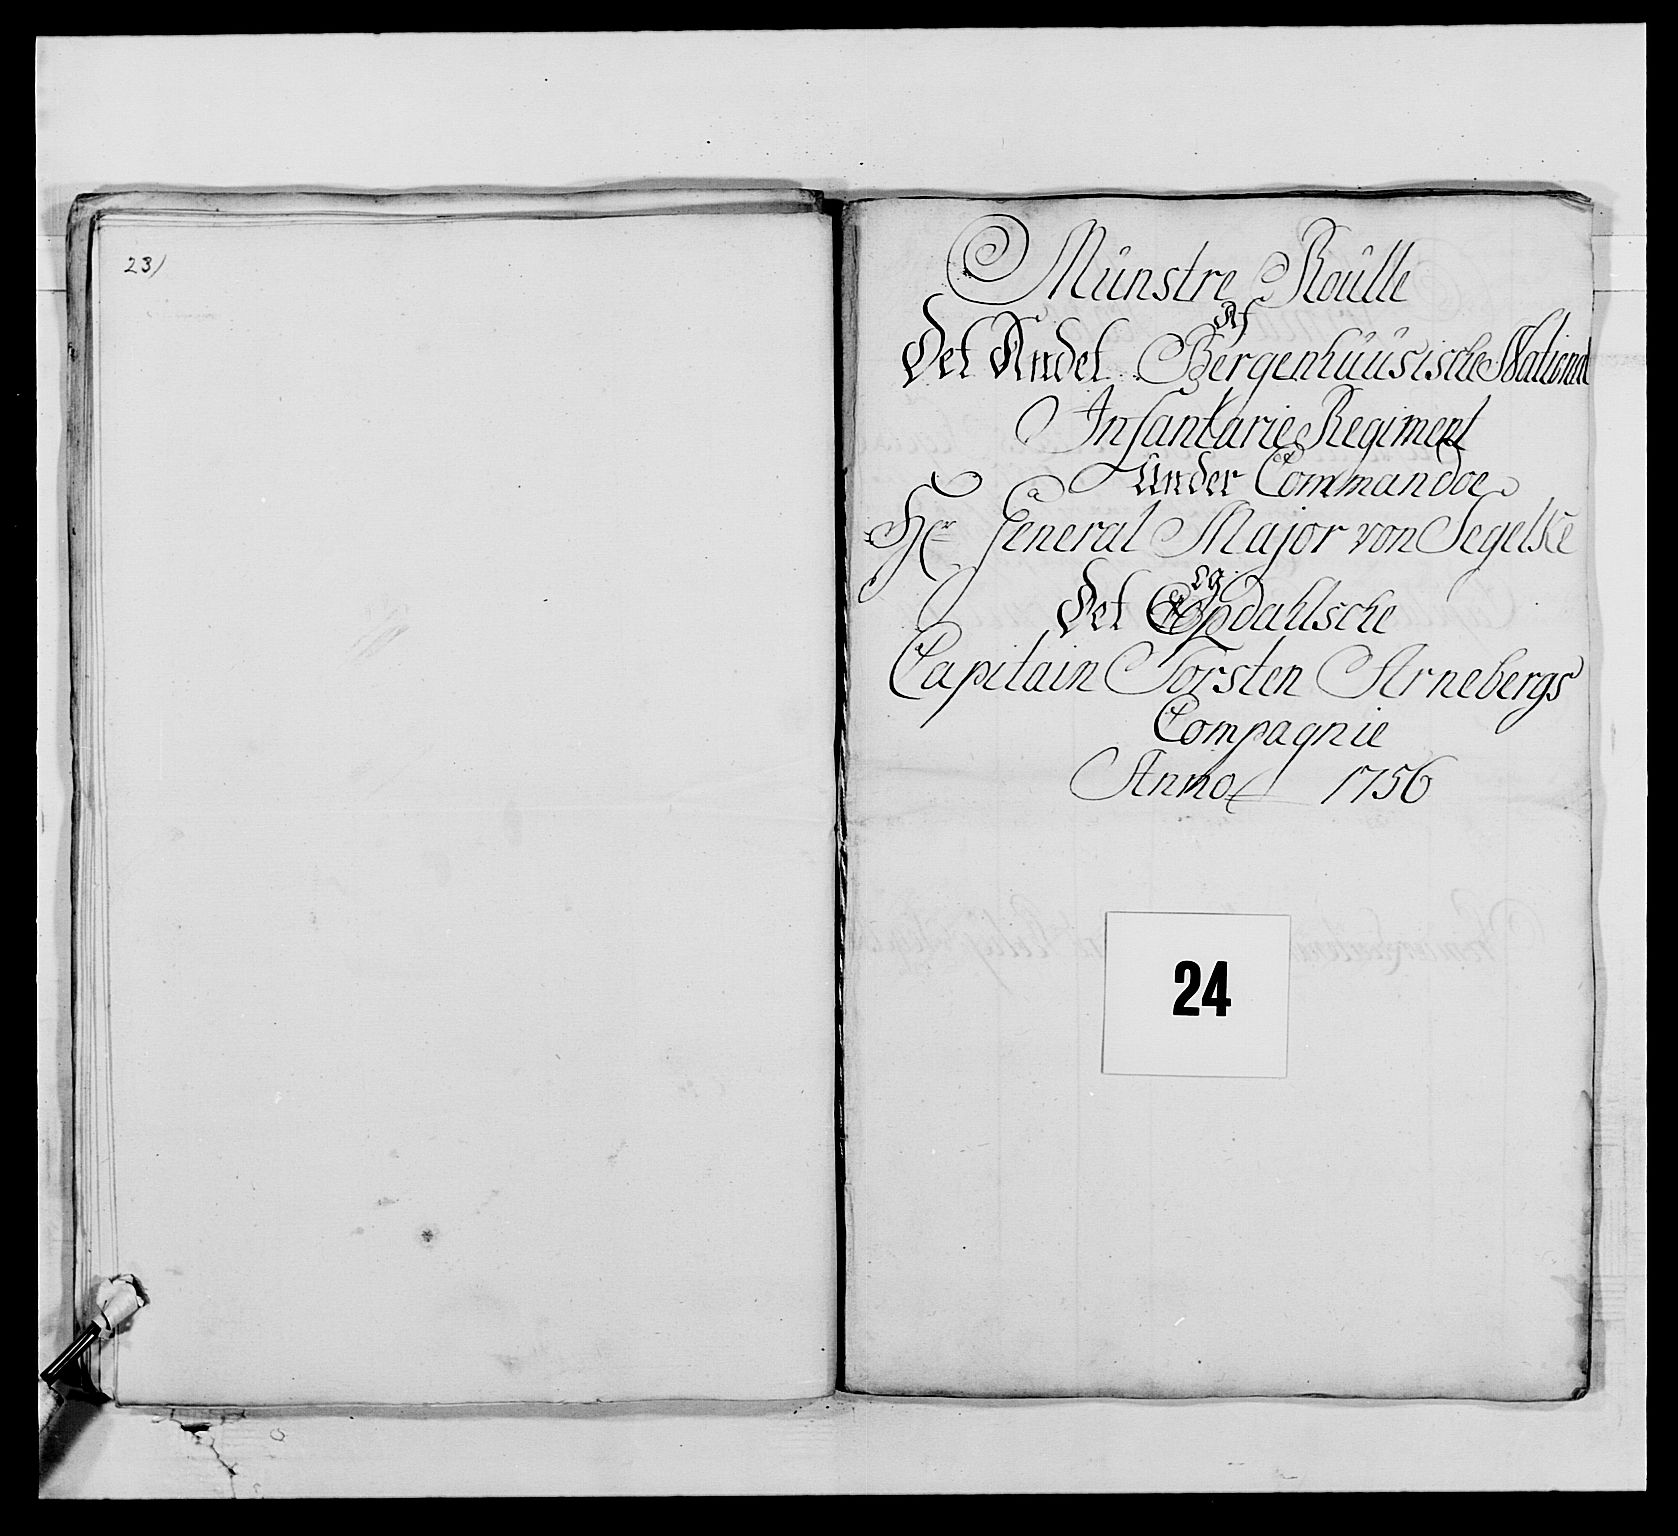 23)
Münstre Roülle
Af
Det Andet Bergenhüüsische National
Infantarie Regiment
Under Commandoe
Hr General Major von Segelke
og
Det Opdahlsche
Capitain Torsten Arnebergs
Compagnie
Anno 1756
24